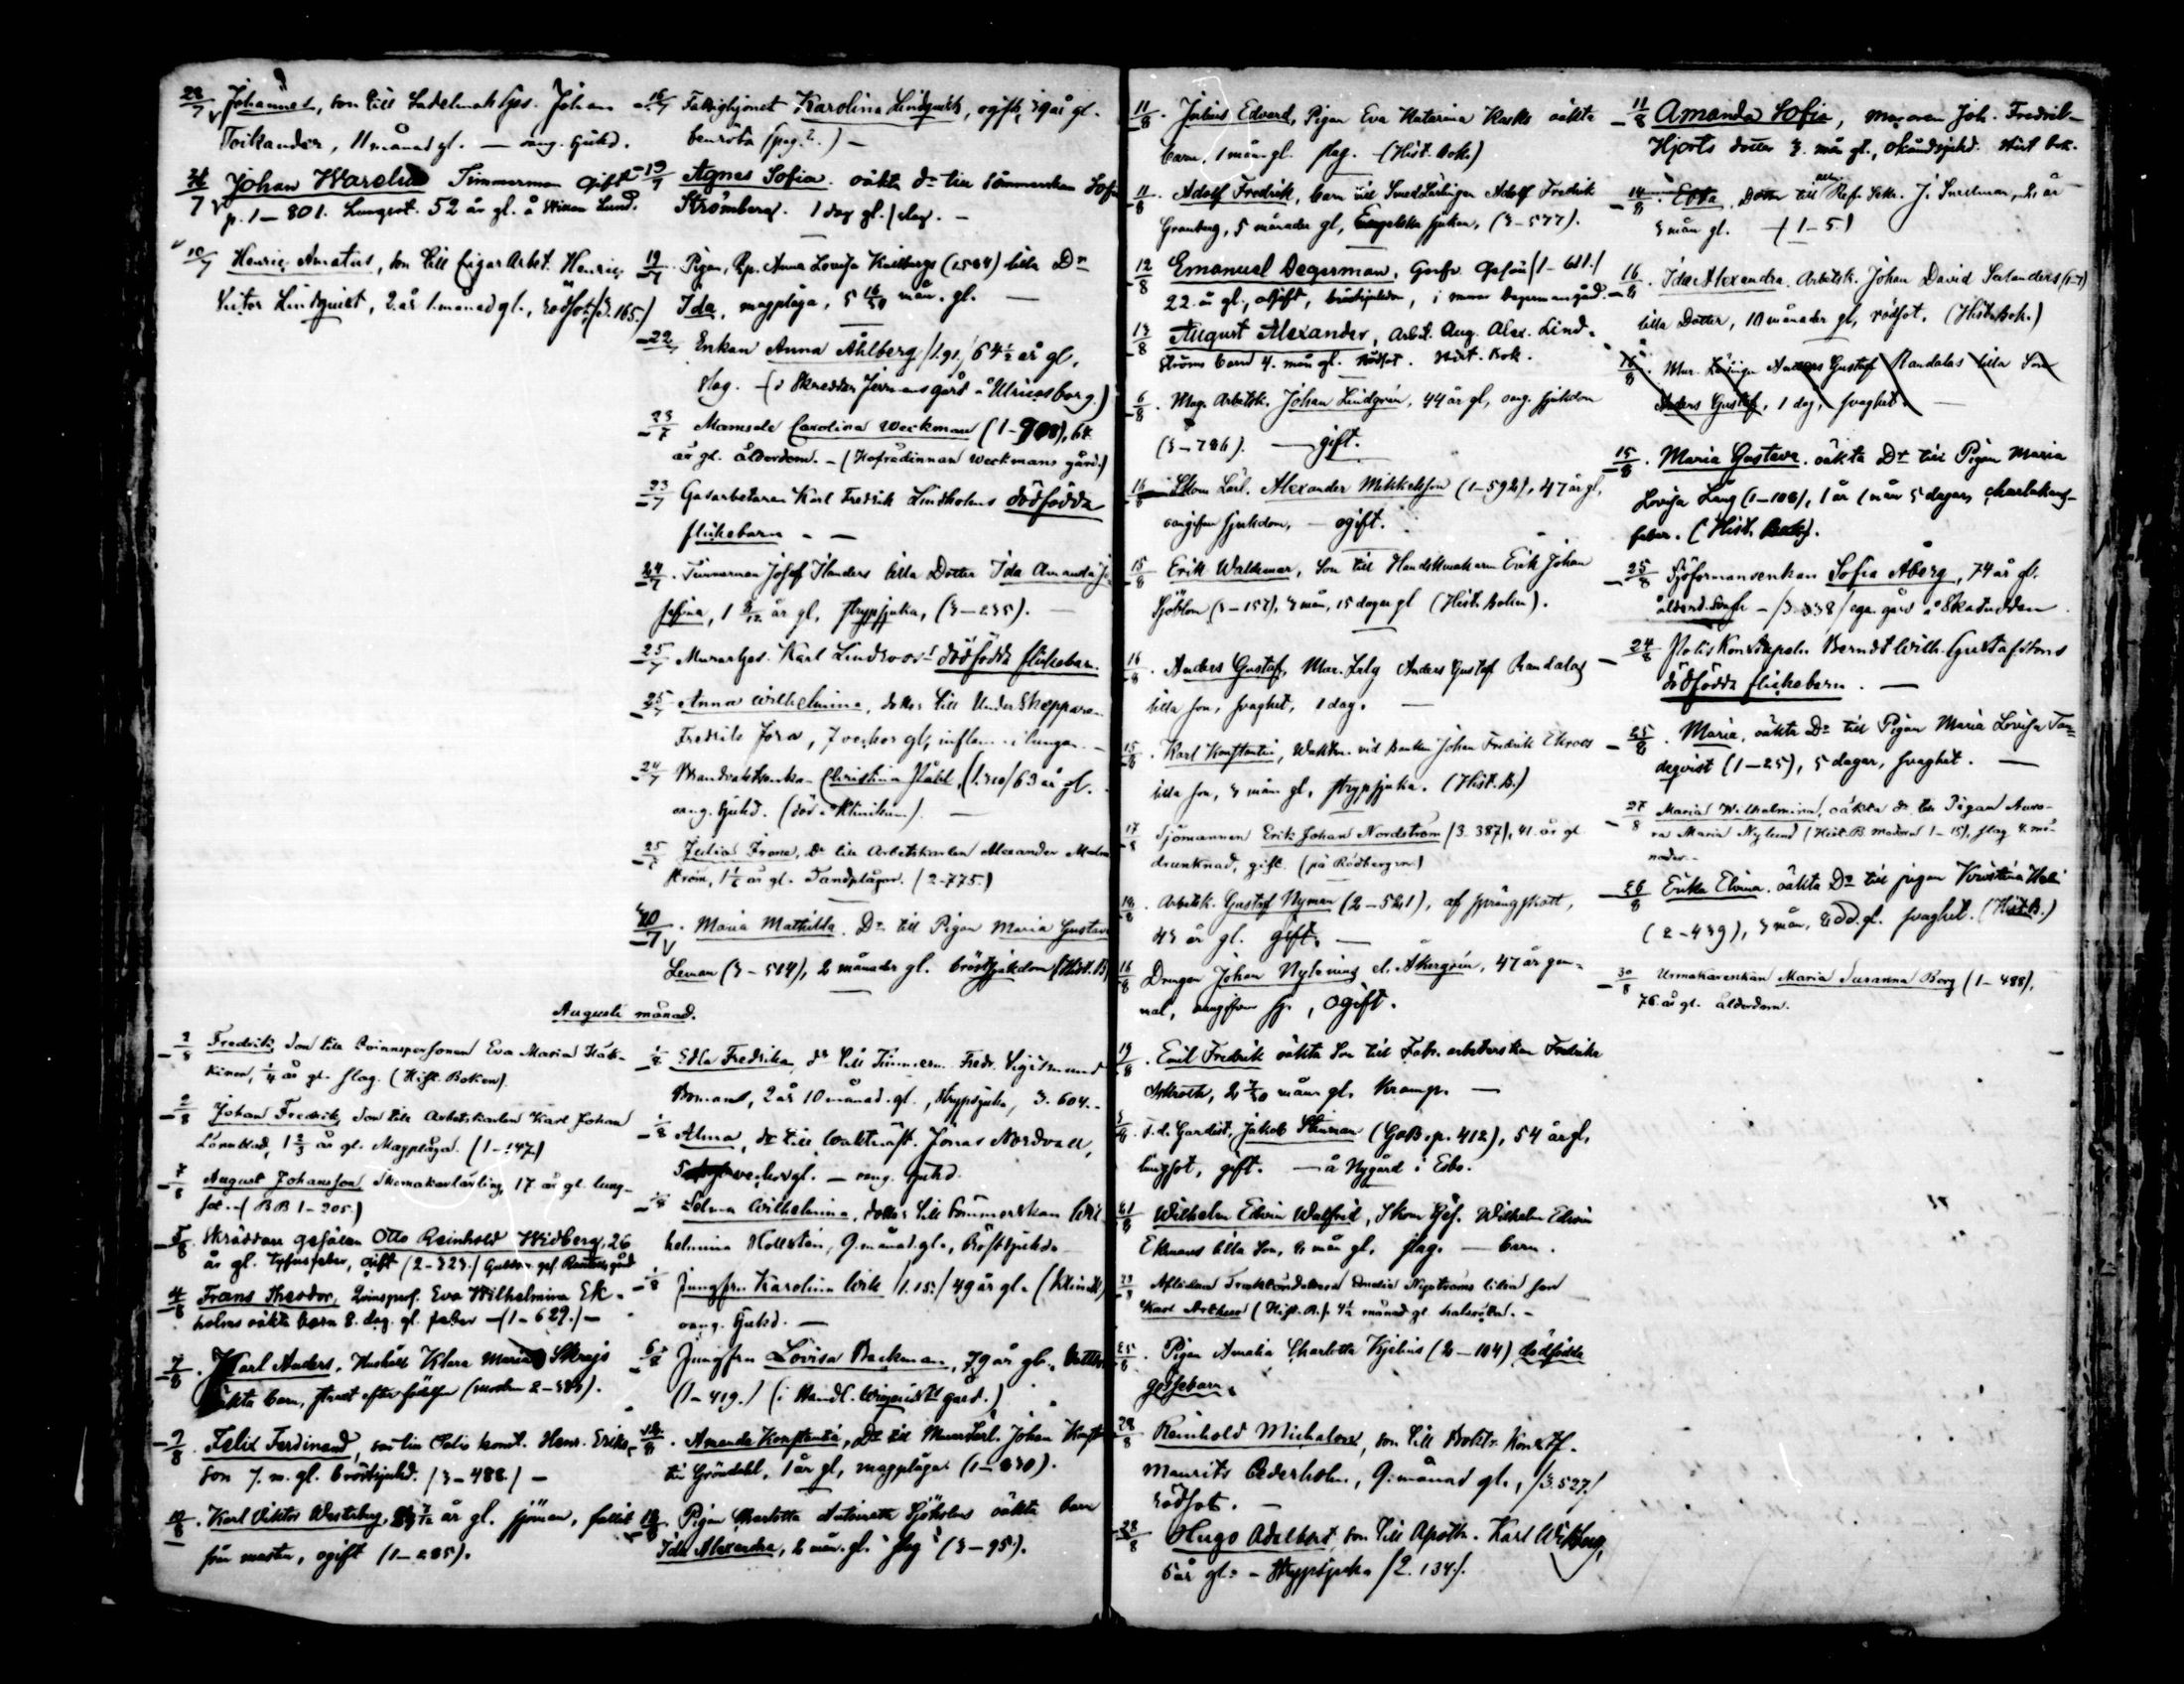 22/7 Johannes, son till Sadelmak Ges. Johan
Toikander, 11 månad gl. — oang. sjukd.
24/7 Johan Warelius Timmerman Gift
p. 1—801. Lungsot. 52 år gl. å Wikan Lund.
10/7 Henric Amatus, son till Cigar Arbet. Henric
Victor Lindquist, 2 år 1 månad gl., rödsot, /3.165./
16/7 Fattighjonet Karolina Lindqvist, ogift, år gl.
benröta (pag. 2.) —
19/7 Agnes Sofia. oäkta dr till Sömmerskan Sofia
Strömberg. 1 dag gl. slag. —
19/7 Pigan, Anna Lovisa lilla Dr
Ida, magplåga, 5 mån. gl. —
22/7 Enkan Anna Åhlberg 64 1/2 år gl.
slag. — (i Skreddar gård å Ulricasborg.)
23/7 Mamsell Carolina Weckman (1—908), 64
år gl. ålderdom. — (Hofrådinnan Weckmans gård.)
23/7 Gasarbetaren Karl Fredrik Lindholms dödfödda
flickebarn — —
24/7 Timmerman Josef lilla Dotter Ida Amanda Jo
sefina, 1 år gl, strypsjuka, (3—235). —
25/7 Murar Ges. Karl Lindroos dödfödda flickebarn.
25/7 Anna Wilhelmina, dotter till Underskeppare
Fredrik Fors, 7 veckor gl, inflam. i lungan. —
24/7 Christina Ståhl, 63 år gl.
oang. sjukd. (död å Klinikum.) —
25/7 Julia Irene, Dr till Arbetskarlen Alexander Malm
ström, 1 år gl. Tandplågor. (2—775.)
10/7 Maria Mathilda. Dr till Pigan Maria Gustava
Leman (3—514), 2 månader gl. bröstsjukdom (Hist. B)
Augusti månad.
2/8 Fredrik, Son till Qvinnspersonen Eva Maria Häk-
kinen, 1/4 år gl. slag. (Hist. Boken).
2/8 Johan Fredrik, Son till Arbetskarlen Karl Johan
Lönnblad, 1 2/3 år gl. Magplåga. (1—147.)
7/8 August Johansson Skomakarlärling, 17 år gl. lung-
sot. — (BB 1—205.)
5/8 Skräddare gesällen Otto Reinhold Widberg, 26
år gl. tyfusfeber, ogift (2—323.)
4/8 Frans Theodor, Qvinsprs. Eva Wilhelmina Ek-
holms oäkta barn 8. dag. gl. feber —(1—629.)—
7/8 Karl Anders, Hushåll Klara Maria
oäkta barn, straxt efter födelsen (modren 2—).
9/8 Felix Ferdinand, son till Polis konst. Henr. Eriks-
son 7. m. gl. bröstsjukd. (3—488.) —
10/8 Karl Viktor Westerberg, år gl. sjöman, fallit
från masten, ogift (1—285).
1/8 Edla Fredrika, dr till Timmerm. Fredr. Sigismund
Bomans, 2 år 10 månad. gl., Strypsjuka, 3. 604. —
1/8 Alma, dr till Waktmäst. Jonas Nordvall,
5 veckor gl. — oang. sjukd.
1/8 Selma Wilhelmina, dotter till Sömmerskan Wil
helmina Hollsten, 9. månad. gl., Bröstsjukd. —
1/8 Jungfru Karolina Wik /1.15./ 49 år gl. (Klinik)
oang. sjukd. —
6/8 Jungfru Lovisa Backman, 79 år gl.
(1—419.) (i Handl. gård.)
/8 Amanda Konstantia, Dr till Murarlärl. Johan Konstan
tin Gröndahl, 1 år gl, magplåga (1—830).
10/8 Pigan Charlotta Antoinette Sjöholms oäkta barn
Ida Alexandra, 2 mån. gl. slag (3—95).
11/8 Julius Edvard, Pigan Eva Katarina Rasks oäkta
barn, 1 mån. gl. slag. — (Hist. Bok.)
11/8 Adolf Fredrik, barn till Smedlärlingen Adolf Fredrik
Granberg, 5 månader gl, Engelska sjukan, (3—577).
12/8 Emanuel Degerman, Garfv. Gesäll (1—611.)
22. år gl., ogift, bröstsjukdom, i muraren Degermans gård. —
13/8 August Alexander, Arbet. Aug. Alex. Lind-
ströms barn 4. mån gl. Rödsot. Hist. Bok.
6/8 Mag. Arbetsk. Johan Lindgrén, 44 år gl, oang. sjukdom
(3—786). — gift.
16/8 Skom Lärl. Alexander Mikkelsson (1—592), 47 år gl,
oangifven sjukdom, — ogift.
15/8 Erik Waldemar, Son till Handskmakaren Erik Johan
Sjöblom (3—157), 3 mån, 15 dagar gl (Hist. Boken).
16/8 Anders Gustaf, Mur. Lärlg Anders Gustaf Randalas
lilla son, svaghet, 1 dag. —
15/8 Karl Konstantin, Waktm. vid Banken Johan Fredrik Ekroos
lilla son, 3 mån gl, strypsjuka. (Hist. B.)
17/8 Sjömannen Erik Johan Nordström (3. 387), 41. år gl
drunknad, gift. (på Rödbergen)
18/8 Arbetsk. Gustaf Nyman (2—521), af sprängskott,
43 år gl. gift. —
16/8 Drengen Johan Nylenius el. Åkergrén, 47 år gam-
mal, oangifven sj., ogift.
19/8 Emil Fredrik oäkta Son till Fabr. arbeterskan Fredrika
2 7/30 mån gl. Kramp. —
F.d. Gardist, Jakob Stenman (GaB. p. 412), 54 år gl,
lungsot, gift. — å Nygård i Esbo.
21/8 Wilhelm Edvin Walfrid, Skom Ges. Wilhelm Edvin
Ekmans lilla Son, 2 mån gl, slag. — barn.
23/8 Aflidna Amalia Nyströms lilla son
Karl Arthur (Hist. B.). 4 1/2 månad gl. —
25/8 Pigan Amalia Charlotta Kyelius (2—104) dödfödda
gossebarn.
28/8 Reinhold Michael, son till Bokh. Konst.
Maurits Cederholm, 9. månad gl., /3.527/
rödsot. —
28/8 Hugo Adalbert, son till Apoth. Karl Wiberg,
5 år gl. — Strypsjuka /2. 134/.
11/8 Amanda Sofia, muraren Joh. Fredrik
Hjorts dotter 3. mån gl., okänd sjukd. Hist. bok.
14/8 Ebba, Dotter till Ref. Sekr. J. , 2 år
3 mån gl. —(1—5.)
16/8 Ida Alexandra, Arbetsk. Johan David Selanders (1—7)
lilla Dotter, 10 månader gl, rödsot. (Hist. Bok.)
16/8 Mur. Lärlingen Anders Gustaf Randalas lilla Son
Anders Gustaf, 1 dag, svaghet. —
15/8 Maria Gustava, oäkta Dr till Pigan Maria
Lovisa Lang (1—108), 1 år 1 mån 5 dagar, scharlakans-
feber. (Hist. Bok).
25/8 Sjöformansenkan Sofia Åberg, 74 år gl.
— egen gård å Skatudden
24/8 Poliskonstapeln Berndt Wilh. Gustafssons
dödfödda flickebarn. —
25/8 Maria, oäkta Dr till Pigan Maria Lovisa Tan-
deqvist (1—25), 5 dagar, svaghet. —
27/8 Maria Wilhelmina, oäkta dr till Pigan Auro-
ra Maria Nylund (Hist. B. Modren 1—15), slag 4. må-
nader. —
26/8 Erika Elvina, oäkta Dr till pigan Kristina
(2—439), 3 mån, gl. svaghet. (Hist. B.)
30/8 Urmakarenkan Maria Susanna Borg (1—488),
76 år gl. ålderdom.